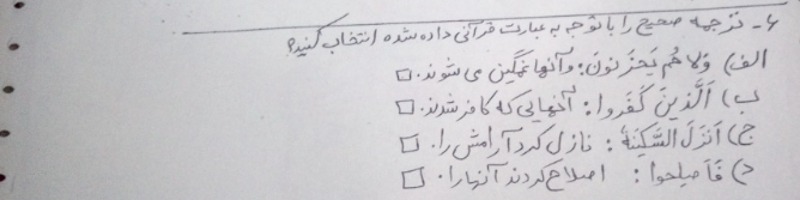 ۶- ترجمه صحیح را با توجه به عبارت قرآنی داده شده انتخاب کنید؟
الف) وَلا هُم یَحزَنونَ: و آنها غمگین می شوند. □
ب) اَلَّذینَ کَفَروا: آنهایی که کافر شدند. □
ج) اَنزَلَ السَّکینَةَ: نازل کرد آرامش را. □
د) فَاَصلِحوا: اصلاح کردند آنها را. □